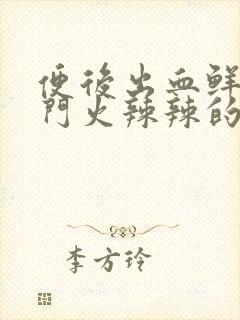 便後出血鲜
門火辣辣的
李方玲